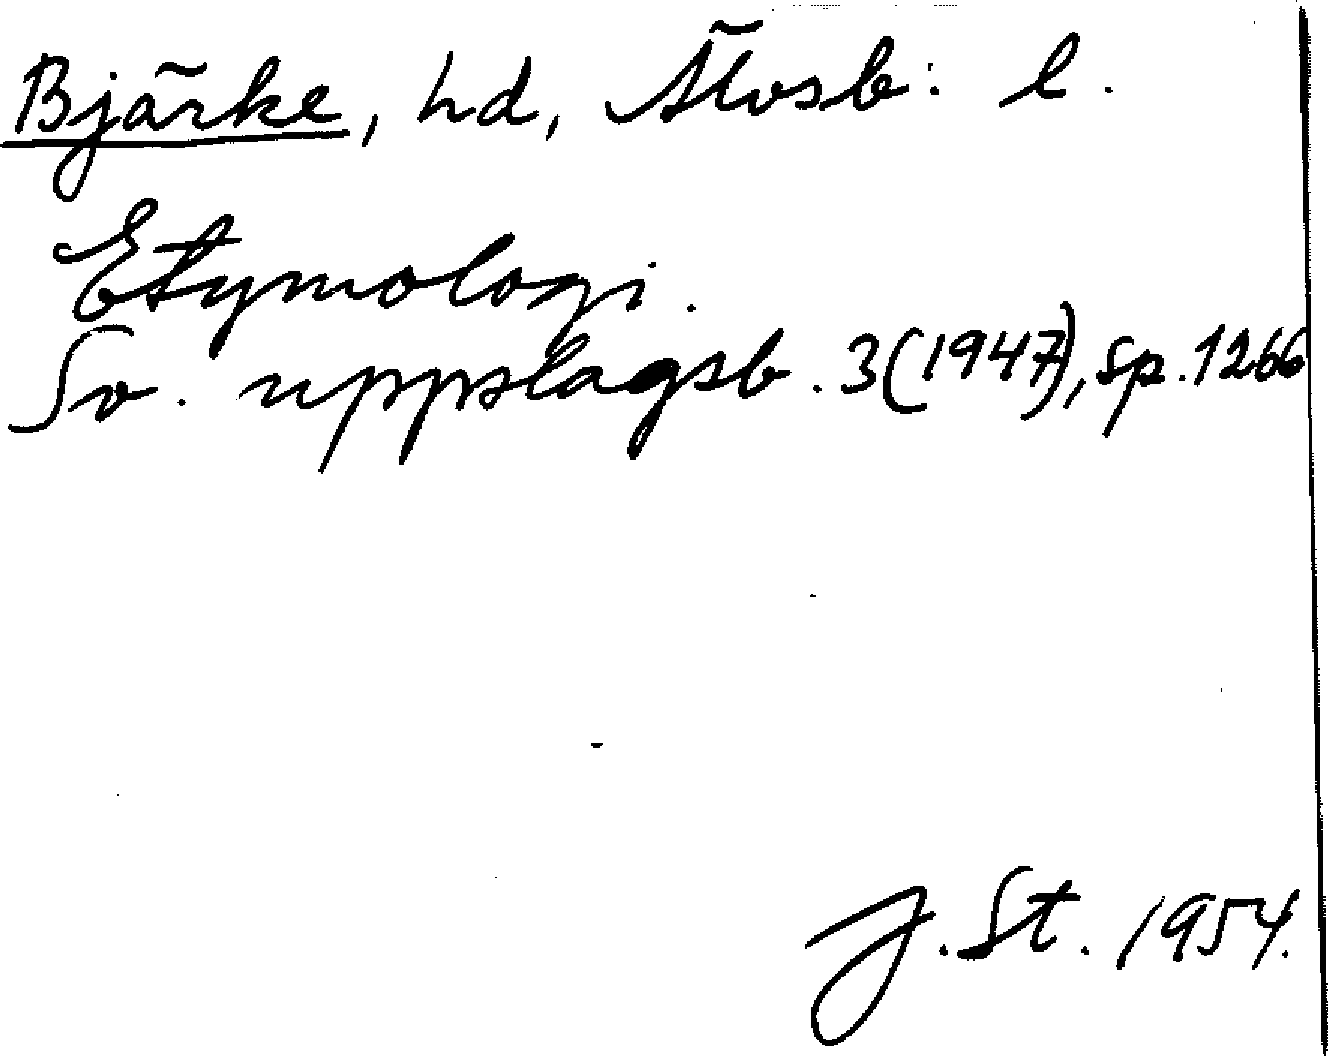 Bjärke, hd, Älvsb. l.
Etymologi.
Sv. uppslagsb. 3(1947), sp. 1266
J. St. 1954.